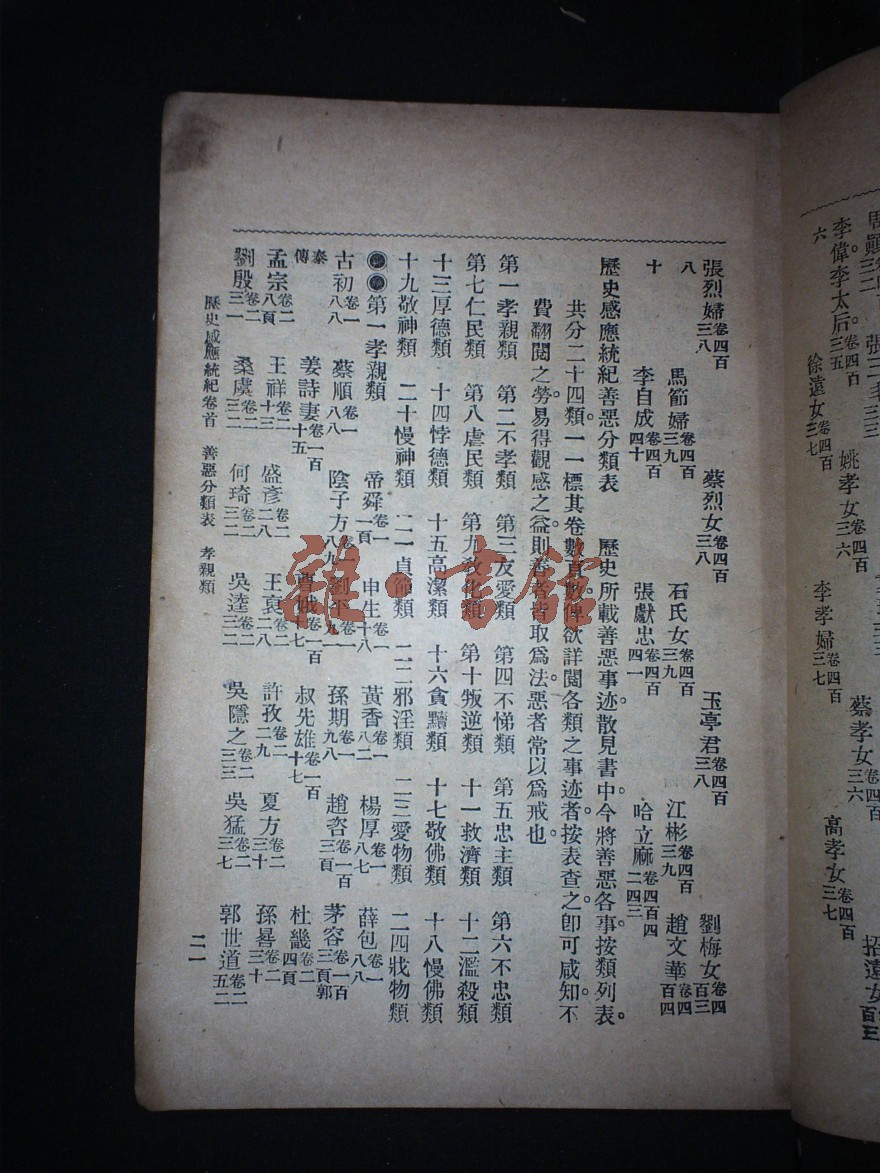 張烈婦卷四百三八 蔡烈女卷四百三八 玉亭君卷四百三八 劉梅女卷四百三
八 馬節婦卷四百三九 石氏女卷四百三九 江彬卷四百三九 趙文華卷四百四
十 李自成卷四百四十 張獻忠卷四百四一 哈立麻卷四百四二四三
歷史感應統紀善惡分類表 歷史所載善惡事迹。散見書中。今將善惡各事。按類列表。
共分二十四類。一一標其卷數頁數。俾欲詳閱各類之事迹者。按表查之。即可咸知。不
費翻閱之勞。易得觀感之益。則善者皆取為法。惡者常以為戒也。
第一孝親類 第二不孝類 第三友愛類 第四不悌類 第五忠主類 第六不忠類
第七仁民類 第八虐民類 第九教化類 第十叛逆類 十一救濟類 十二濫殺類
十三厚德類 十四悖德類 十五高潔類 十六貪黷類 十七敬佛類 十八慢佛類
十九敬神類 二十慢神類 二一貞節類 二二邪淫類 二三愛物類 二四戕物類
第一孝親類 帝舜卷一一頁 申生卷一十八 黃香卷一八二 楊厚卷一八七 薛包卷一八八
古初卷一八八 蔡順卷一八八 陰子方卷一八九 劉平卷一九一 孫期卷一九八 趙咨卷一百三頁 茅容卷一百三頁郭
泰傳 姜詩妻卷一百十五 曹娥卷一百十七 叔先雄卷一百十七 杜畿卷二四頁
孟宗卷二八頁 王祥卷二十三 盛彥卷二二八 王裒卷二二八 許孜卷二二九 夏方卷二三十 孫晷卷二三十
劉殷卷二三一 桑虞卷二三二 何琦卷二三二 吳逵卷二三二 吳隱之卷二三三 吳猛卷二三七 郭世道卷二五二
歷史感應統紀卷首 善惡分類表 孝親類 二一
李偉李太后卷四百三五 姚孝女卷四百三六 蔡孝女卷四百三六 招遠女
六 徐遠女卷四百三七 李孝婦卷四百三七 高孝女卷四百三七
雅·書館